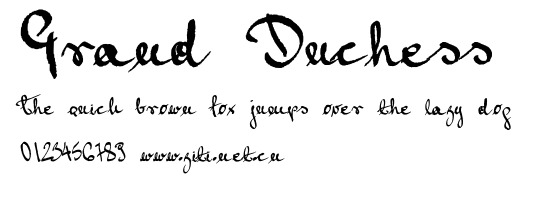 Grand Duchess
the quick brown fox jumps over the lazy dog
0123456789 www.ziti.net.cn